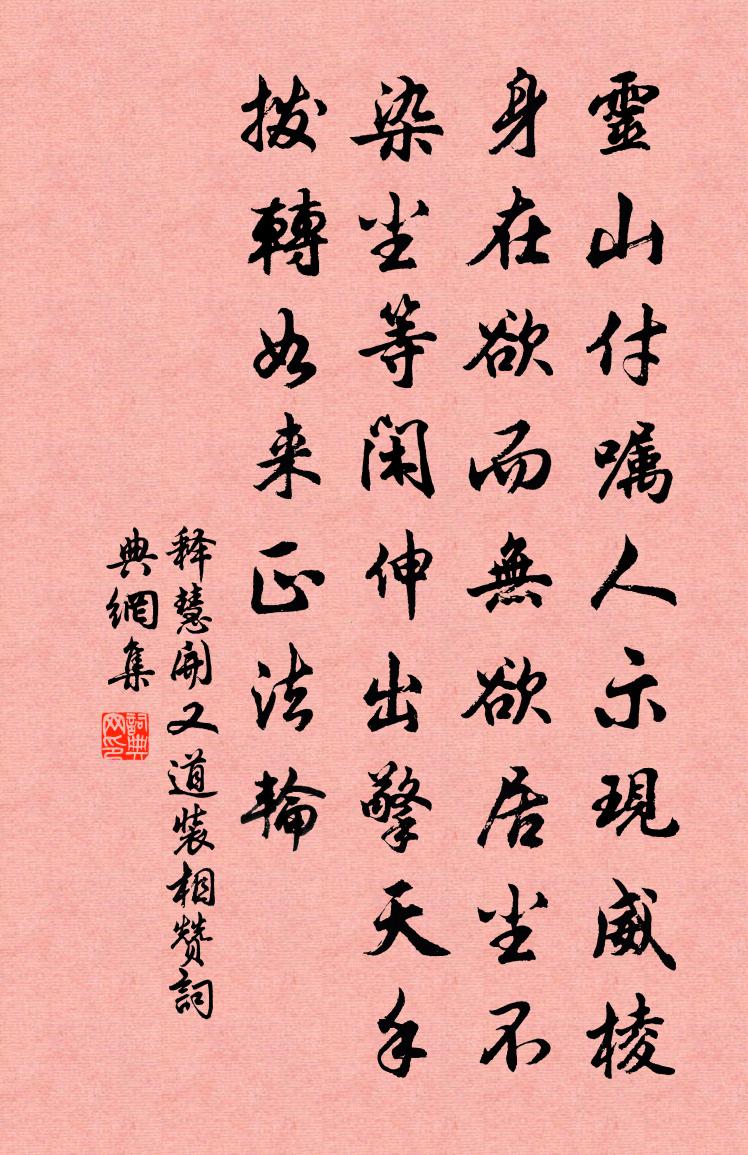 靈山付嘱人示現威棱
身在欲而無欲居尘不
染尘等閑伸出擎天手
拨轉如来正法輪
释慧開又道装相赞詞
典網集
詞典
网印